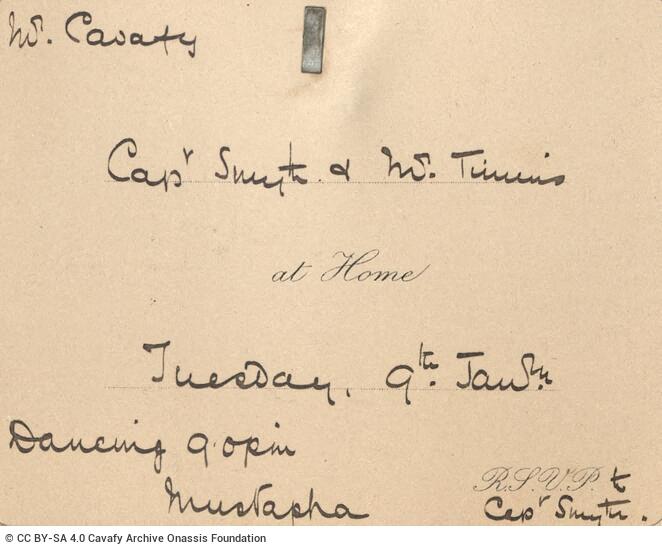 Mr. Cavafy
Capt Smyth & Mr. Timmis
at Home
Tuesday, 9th. Jan
Dancing 9.0 pm
Mustapha
R.S.V.P. to
Capt Smyth.
© CC BY-SA 4.0 Cavafy Archive Onassis Foundation